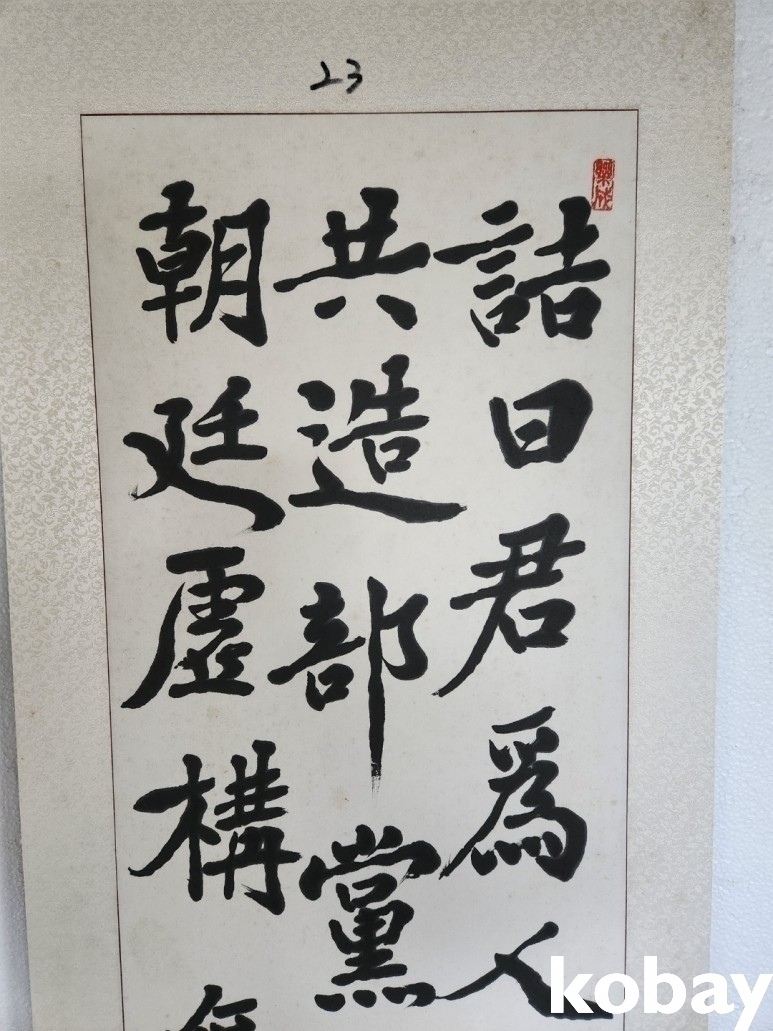 23
詰曰君爲人
共造部黨
朝廷虛構
kobay